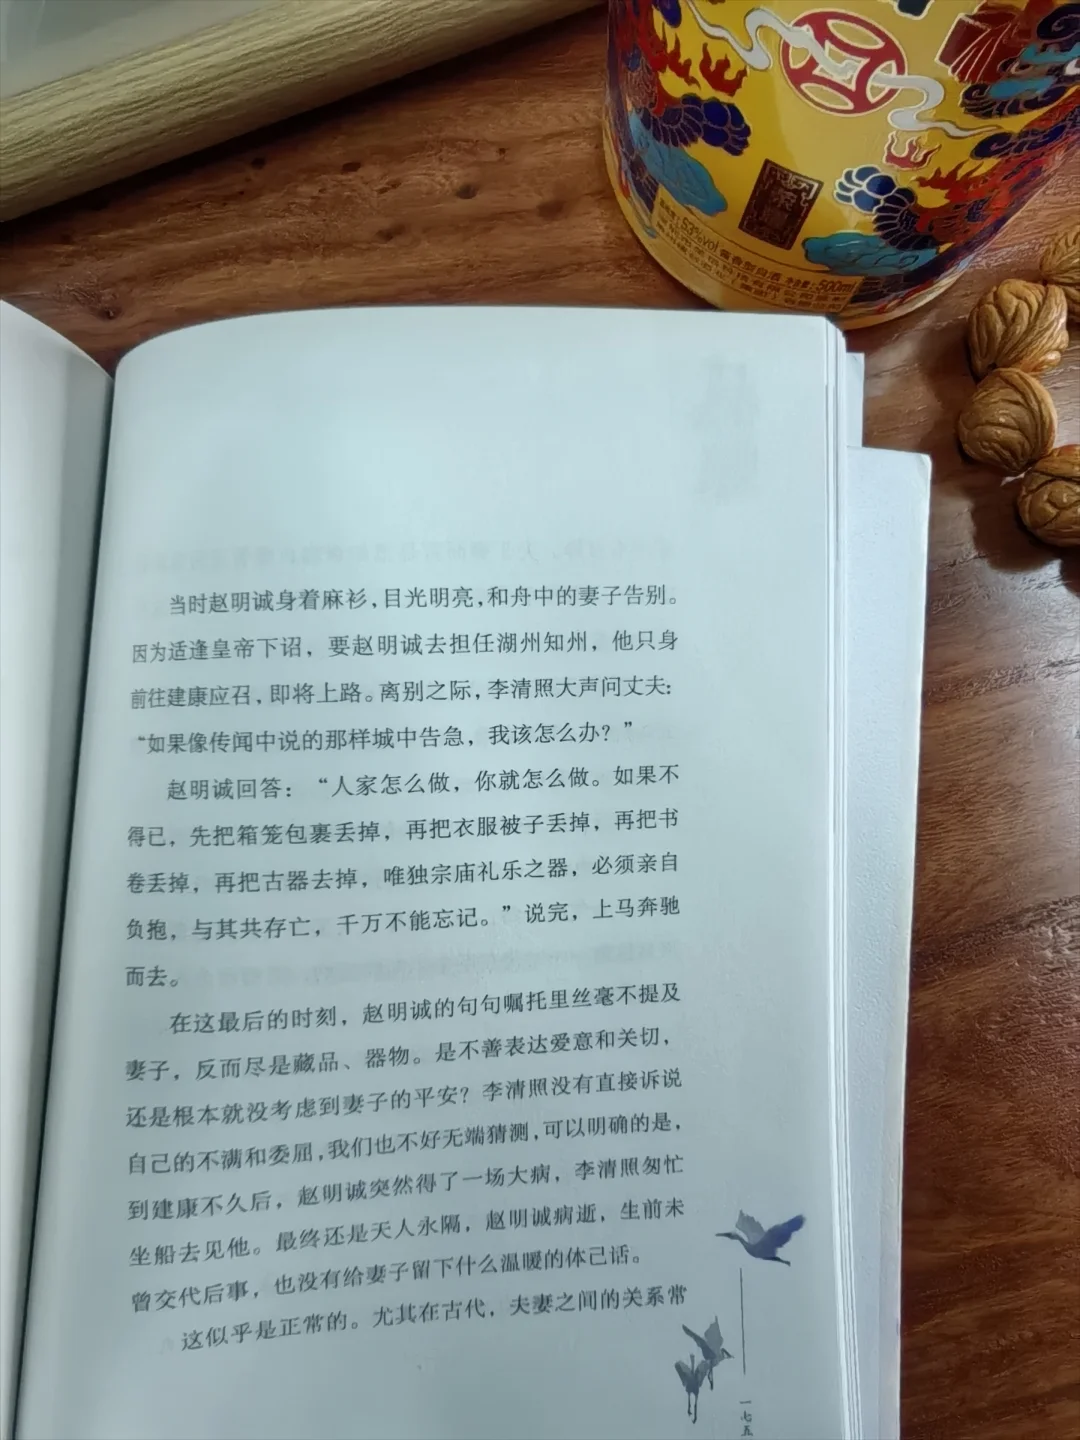 53%vol 酱香型白酒 净含量:500ml
当时赵明诚身着麻衫,目光明亮,和舟中的妻子告别。
因为适逢皇帝下诏,要赵明诚去担任湖州知州,他只身
前往建康应召,即将上路。离别之际,李清照大声问丈夫:
“如果像传闻中说的那样城中告急,我该怎么办?”
赵明诚回答:“人家怎么做,你就怎么做。如果不
得已,先把箱笼包裹丢掉,再把衣服被子丢掉,再把书
卷丢掉,再把古器去掉,唯独宗庙礼乐之器,必须亲自
负抱,与其共存亡,千万不能忘记。”说完,上马奔驰
而去。
在这最后的时刻,赵明诚的句句嘱托里丝毫不提及
妻子,反而尽是藏品、器物。是不善表达爱意和关切,
还是根本就没考虑到妻子的平安?李清照没有直接诉说
自己的不满和委屈,我们也不好无端猜测,可以明确的是,
到建康不久后,赵明诚突然得了一场大病,李清照匆忙
坐船去见他。最终还是天人永隔,赵明诚病逝,生前未
曾交代后事,也没有给妻子留下什么温暖的体己话。
这似乎是正常的。尤其在古代,夫妻之间的关系常
一七五